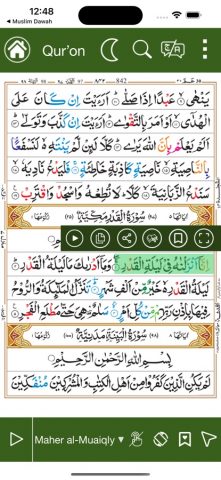 12:48
◀ Muslim Dawah
Qur'on
842
يَنْهٰىۙ عَبْدًا اِذَا صَلّٰىؕ اَرَءَيْتَ اِنْ كَانَ عَلَى
الْهُدٰٓىۙ اَوْ اَمَرَ بِالتَّقْوٰىؕ اَرَءَيْتَ اِنْ كَذَّبَ وَتَوَلّٰىؕ
اَلَمْ يَعْلَمْ بِاَنَّ اللّٰهَ يَرٰىؕ كَلَّا لَئِنْ لَّمْ يَنْتَهِ لَنَسْفَعًۢا
بِالنَّاصِيَةِۙ نَاصِيَةٍ كَاذِبَةٍ خَاطِئَةٍۚ فَلْيَدْعُ نَادِيَهٗۙ
سَنَدْعُ الزَّبَانِيَةَۙ كَلَّاؕ لَا تُطِعْهُ وَاسْجُدْ وَاقْتَرِبْ
سُوْرَةُ الْقَدْرِ مَكِّيَّةٌ
اِنَّاۤ اَنْزَلْنٰهُ فِيْ لَيْلَةِ الْقَدْرِۚ وَمَاۤ اَدْرٰىكَ مَا لَيْلَةُ الْقَدْرِؕ
لَيْلَةُ الْقَدْرِ خَيْرٌ مِّنْ اَلْفِ شَهْرٍؕ تَنَزَّلُ الْمَلٰٓئِكَةُ وَالرُّوْحُ
فِيْهَا بِاِذْنِ رَبِّهِمْۚ مِنْ كُلِّ اَمْرٍۙ سَلٰمٌ هِيَ حَتّٰى مَطْلَعِ الْفَجْرِ
سُوْرَةُ الْبَيِّنَةِ مَدَنِيَّةٌ
بِسْمِ اللّٰهِ الرَّحْمٰنِ الرَّحِيْمِ
لَمْ يَكُنِ الَّذِيْنَ كَفَرُوْا مِنْ اَهْلِ الْكِتٰبِ وَالْمُشْرِكِيْنَ مُنْفَكِّيْنَ
Maher al-Muaiqly